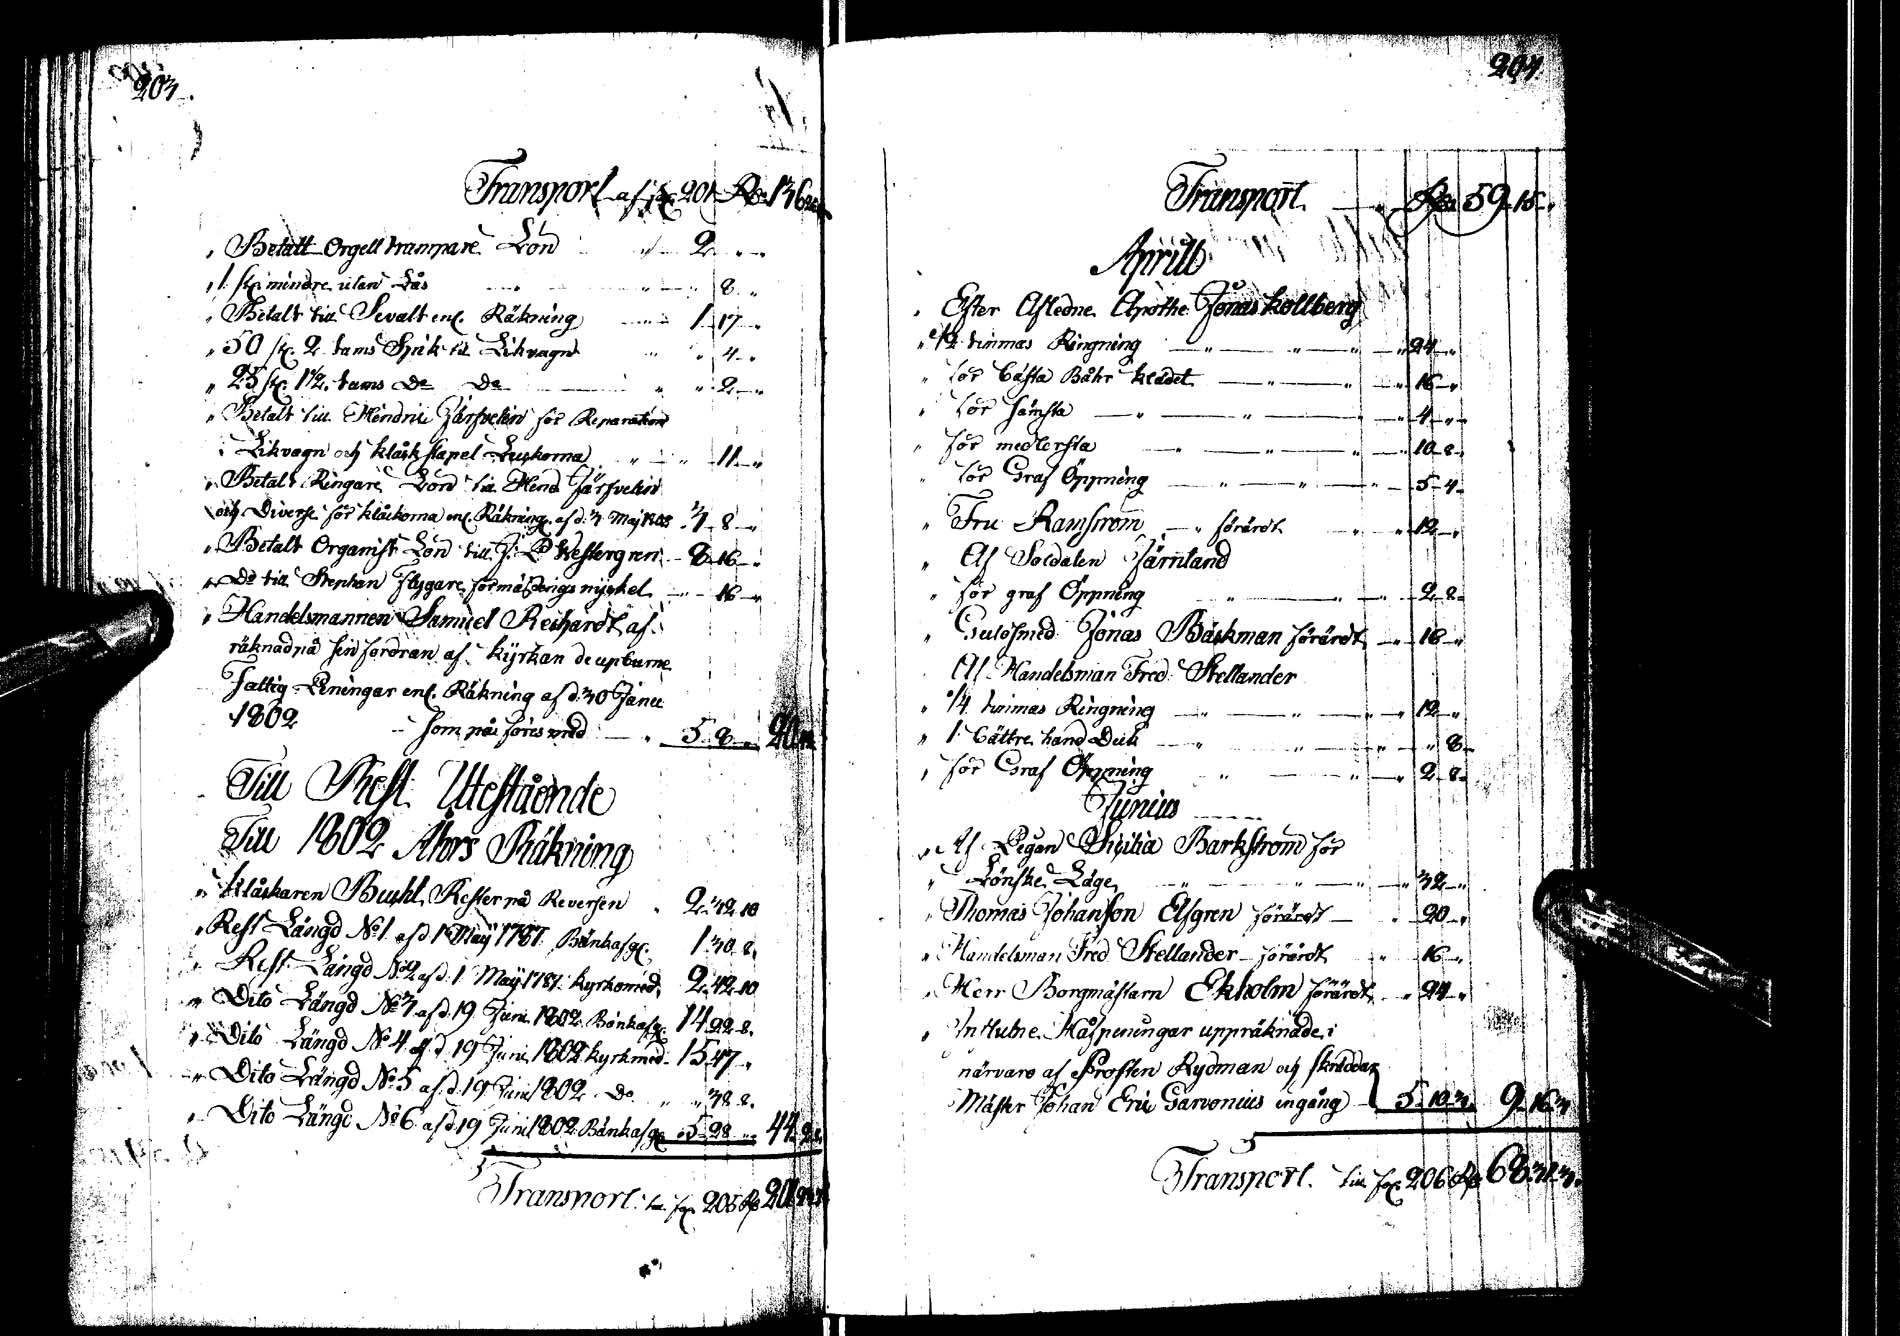 203.
Transport af sx. 201 Rd 136
" Betalt Orgelltrampare Lön 2 " "
" 1 st. mindre utan Lås " 8 "
" Betalt till Sevalt enl. Räkning 1 17 "
" 50 st. 2 tums Spik till Likvagn " 4 "
" 25 st. 1 1/2 tums Do Do " 2 "
" Betalt till Hendric Järfvelin för Reparation
i Likvagn och klåckstapel Luckorna " 11 "
" Betalt Ringare Lön till Hend Järfvelin
och Diverse för klåckorna enl. Räkning af d. 3 Maj 1802 3 8 "
" Betalt Organist Lön till J: P Westergren 8 16 "
" Do till Stephan Flygare för nyckel " 16 "
" Handelsmannen Samuel Reichardt af
räknad på sin fordran af kyrkan de upburne
Fattig Peningar enl. Räkning af d. 30 Janu
1802 som påföres med 5 8 " 20
Till Rest Utestående
Till 1802 Åhrs Räkning
" Klåckaren Buhl, Rester på Reversen 2 32 10
" Rest Längd No 1 af d 1 May 1787 Bänkafg. 1 30 8
" Rest Längd No 2 af d. 1 May 1787. kyrkomed. 2 42 10
" Dito Längd No 3 af d. 19 Juni 1802 Bänkafg. 14 22 8
" Dito Längd No 4 af d 19 Juni 1802 kyrkmed. 15 47 "
" Dito Längd No 5 af d. 19 Juni 1802 Do " 38 8
" Dito Längd No 6 af d 19 Juni 1802 Bänkafg. 5 28 " 44
Transport till sx. 205 Rd 201
204
Transport Rd 59 15 "
Aprill
" Efter Afledne Apothe: Jonas kollberg
" 1/2 timmas Ringning " 24 "
" för bästa Båhr klädet " 16 "
" för sämsta " 4 "
" för medlersta " 10 8
" för Graf Öppning " 5 4
" Fru Ramström förärdt " 12 "
" Af Soldaten Järnland
" för graf Öppning " 2 8
" Guldsmed Jonas Bäckman förärdt " 16 "
Af Handelsman Fred Stellander
" 1/4 timmas Ringning " 12 "
" 1 bättre hand Duk " " 8
" för Graf Öppning " 2 8
Junius
" Af Pigan Sicilia Barkström för
" Lönske Läge " 32 "
" Thomas Johansson Elfgren förärdt " 20 "
" Handelsman Fred Stellander förärdt " 16 "
" Herr Borgmästarn Ekholm förärdt " 24 "
" Influtne Håfpeningar uppräknade i
närvaro af Prosten Rydman och skräddar
Mäster Johan Eric Garvonius ingång 5 10 3 9 16 3
Transport till sx. 206 Rd 68 31 3